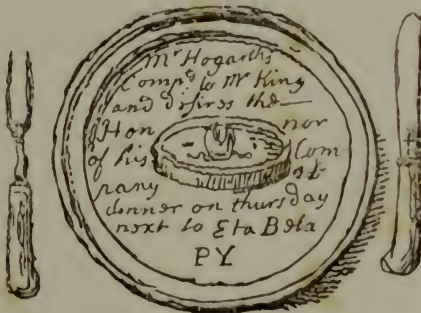 Mr Hogarth's
Compts to Mr King
and desires the
Honnor
of his Com
pany at
dinner on thursday
next to Eta Beta
PY